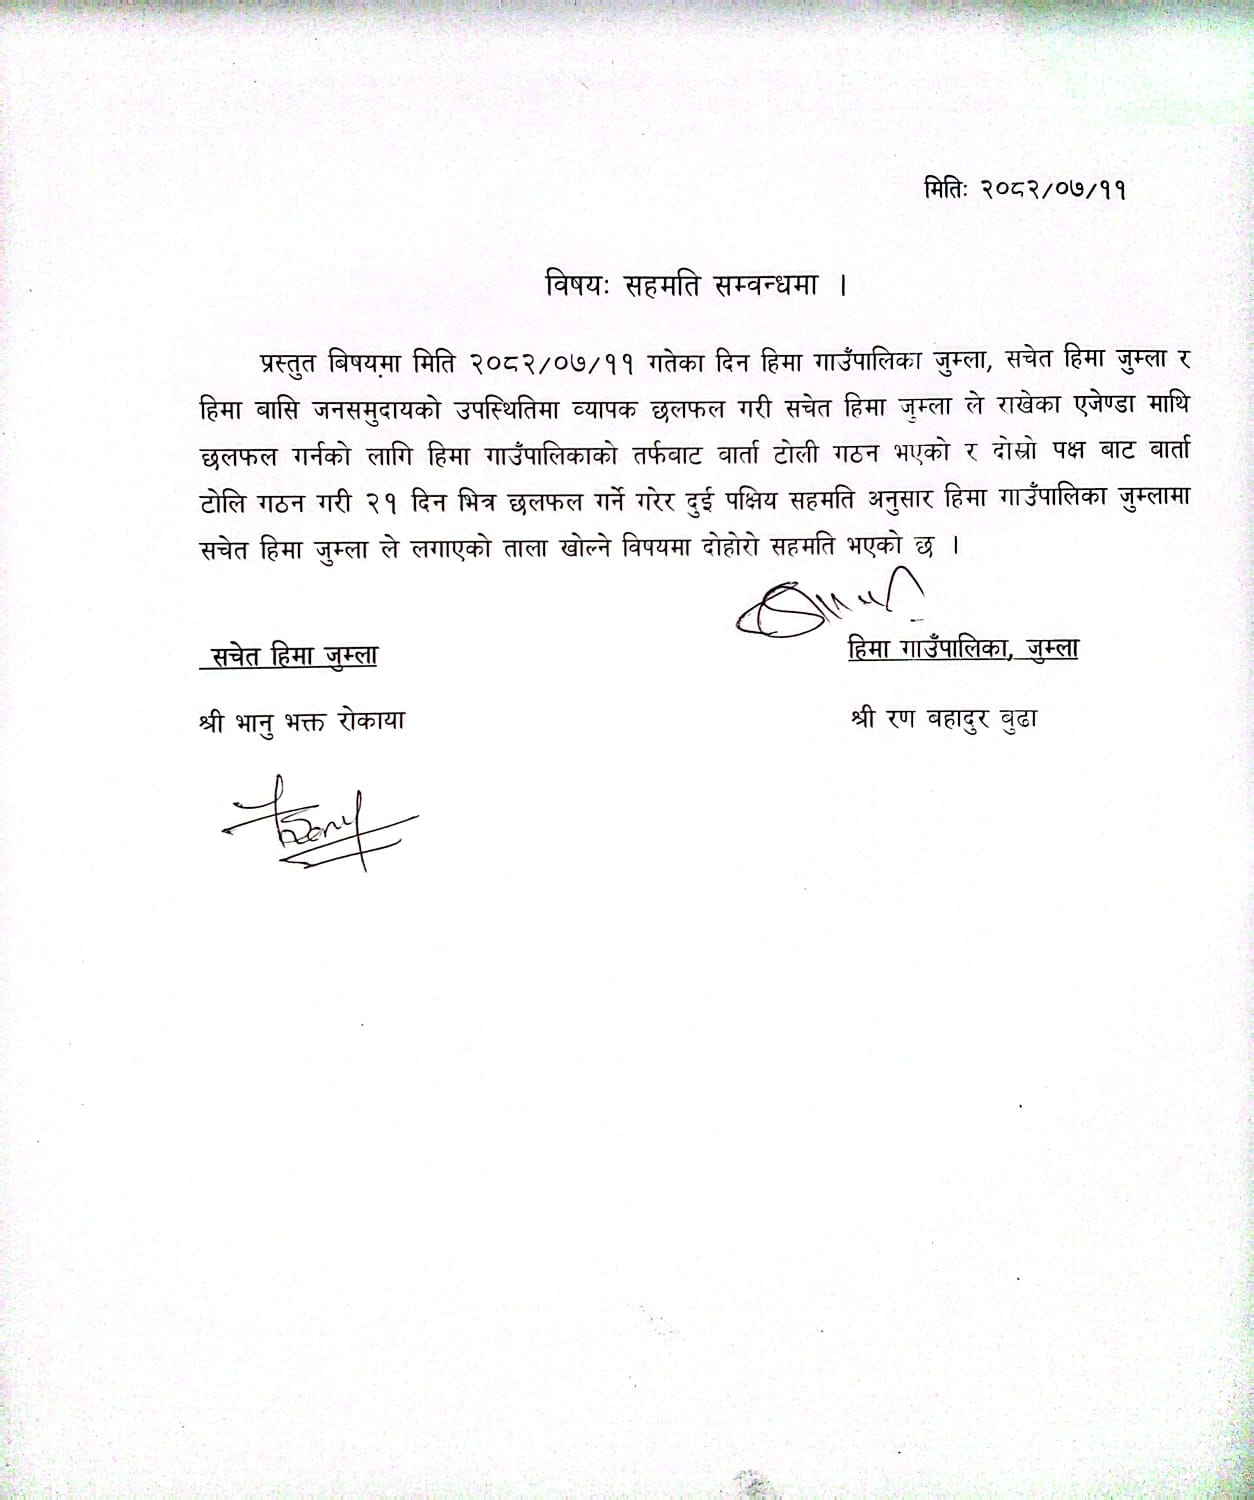 मितिः २०८२/०७/११
विषयः सहमति सम्वन्धमा ।
प्रस्तुत बिषयमा मिति २०८२/०७/११ गतेका दिन हिमा गाउँपालिका जुम्ला, सचेत हिमा जुम्ला र
हिमा बासि जनसमुदायको उपस्थितिमा व्यापक छलफल गरी सचेत हिमा जुम्ला ले राखेका एजेण्डा माथि
छलफल गर्नको लागि हिमा गाउँपालिकाको तर्फवाट वार्ता टोली गठन भएको र दोस्रो पक्ष बाट बार्ता
टोलि गठन गरी २१ दिन भित्र छलफल गर्ने गरेर दुई पक्षिय सहमति अनुसार हिमा गाउँपालिका जुम्लामा
सचेत हिमा जुम्ला ले लगाएको ताला खोल्ने विषयमा दोहोरो सहमति भएको छ ।
सचेत हिमा जुम्ला
हिमा गाउँपालिका, जुम्ला
श्री भानु भक्त रोकाया
श्री रण बहादुर बुढा